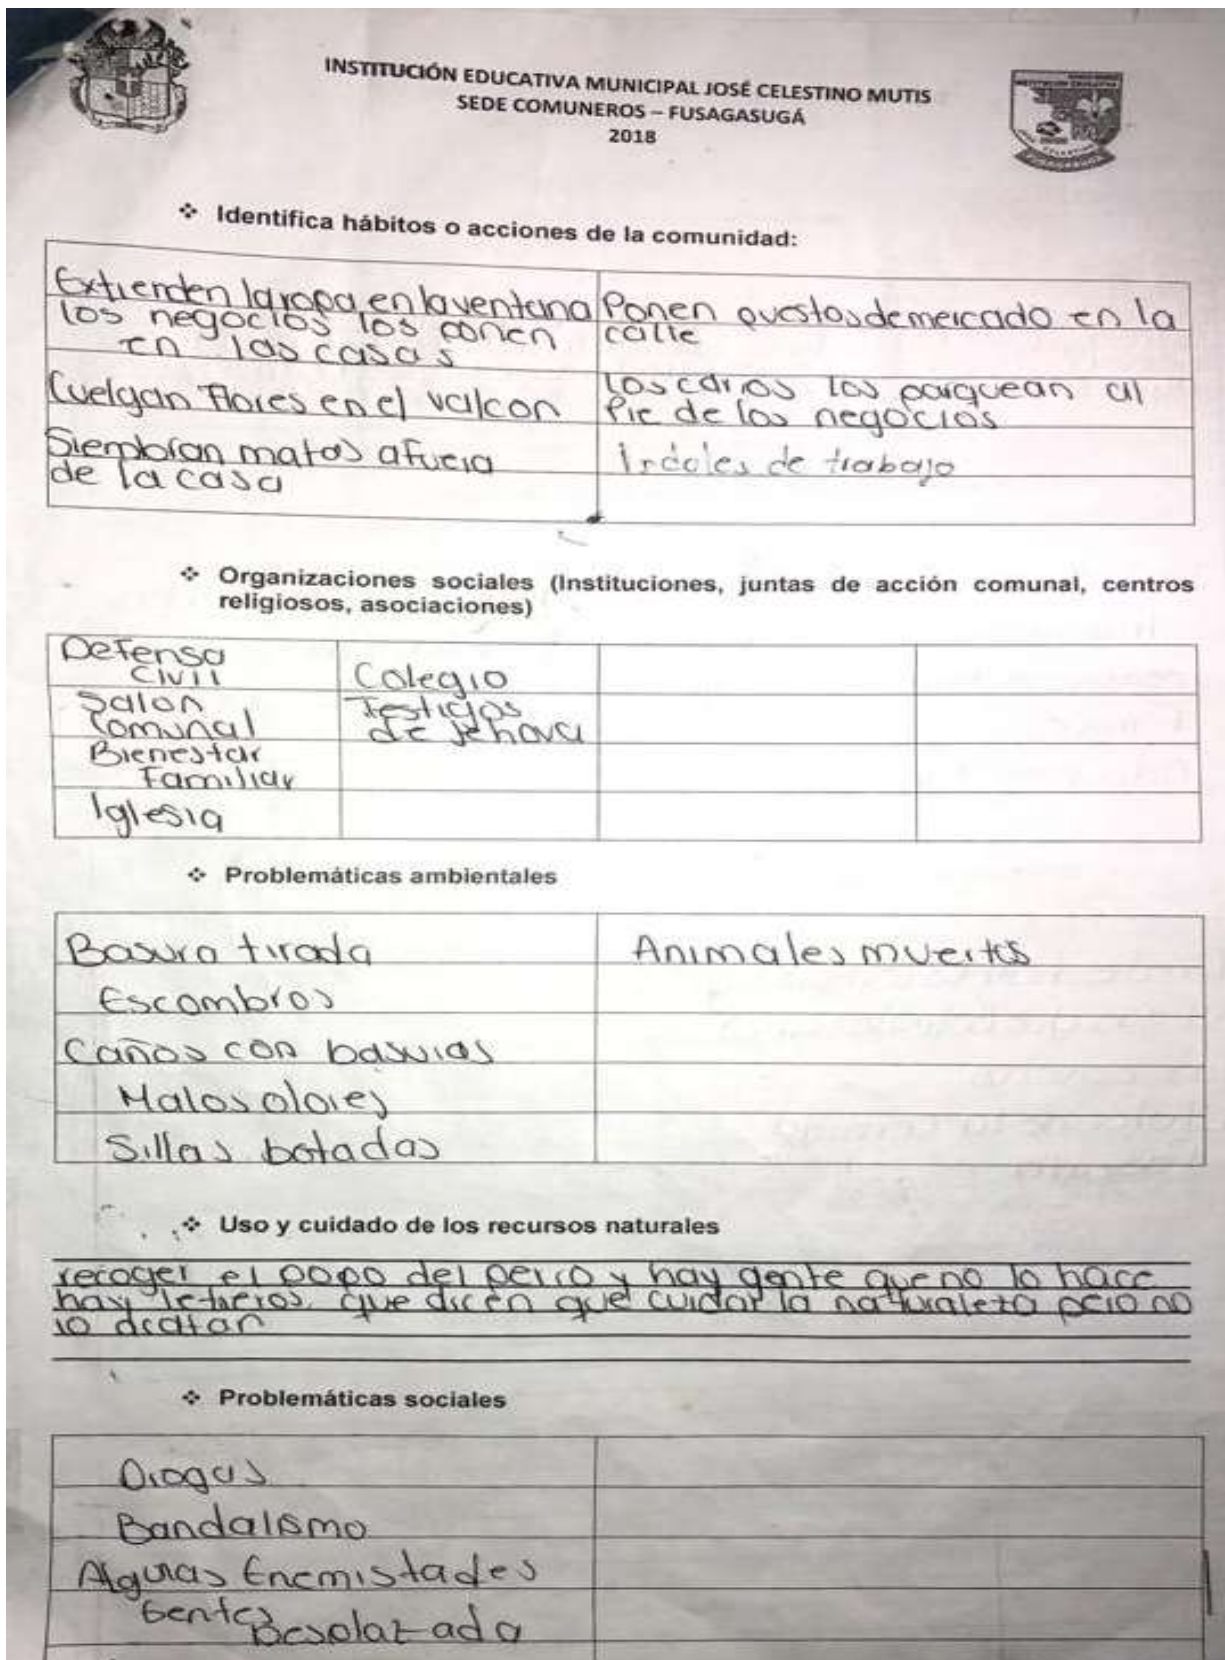 INSTITUCIÓN EDUCATIVA MUNICIPAL JOSÉ CELESTINO MUTIS
SEDE COMUNEROS – FUSAGASUGÁ
2018
❖ Identifica hábitos o acciones de la comunidad:
Extienden la ropa en la ventana
los negocios los ponen
en las casas
Ponen puestos de mercado en la
calle
Cuelgan Flores en el valcon
los carros los parquean al
Pie de los negocios
Siembran matas afuera
de la casa
Indoles de trabajo
❖ Organizaciones sociales (Instituciones, juntas de acción comunal, centros
religiosos, asociaciones)
Defensa
Civil
Colegio
Salon
Comunal
Testigos
de Jehova
Bienestar
Familiar
Iglesia
❖ Problemáticas ambientales
Basura tirada
Animales muertos
Escombros
Caños con basuras
Malos olores
Sillas botadas
❖ Uso y cuidado de los recursos naturales
recoger el popo del perro y hay gente que no lo hace
hay letreros que dicen que cuidar la naturaleza pero no
lo
❖ Problemáticas sociales
Drogas
Bandalismo
Algunas Enemistades
Gentes
Desplazada